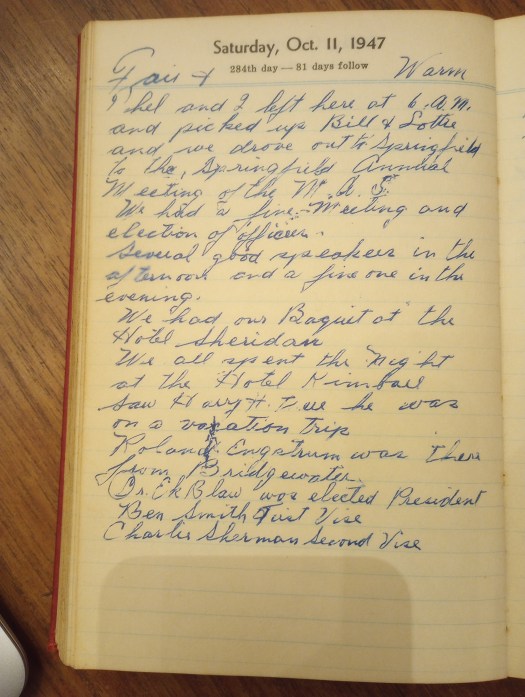 Saturday, Oct. 11, 1947
284th day — 81 days follow
Fair & Warm
Thel and I left here at 6. A.M.
and picked up Bill & Lottie
and we drove out to Springfield
to the, Springfield Annual
Meeting of the M. A. S.
We had a fine Meeting and
election of officers.
Several good speakers in the
afternoon and a fine one in the
evening.
We had our Baquet at the
Hotel Sheridan
We all spent the Night
at the Hotel Kimball
Saw Harry H. he was
on a vacation trip
Roland Engstrum was there
from Bridgewater.
Dr. Ek Blaw was elected President
Ben Smith First Vise
Charlie Sherman Second Vise